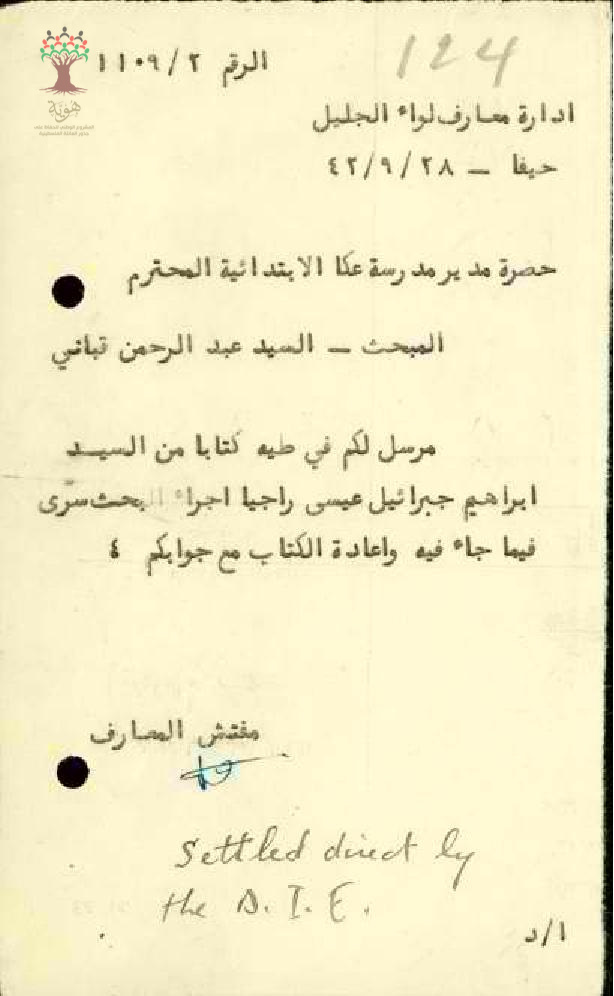 124
الرقم ١١٠٩/٢
هوية
ادارة معارف لواء الجليل
حيفا — ٤٢/٩/٢٨
حضرة مدير مدرسة عكا الابتدائية المحترم
المبحث — السيد عبد الرحمن قباني
مرسل لكم في طيه كتابا من السيد
ابراهيم جبرائيل عيسى راجيا اجراء البحث سرّى
فيما جاء فيه واعادة الكتاب مع جوابكم ٤
مفتش المعارف
Settled direct by
the D. I. E.
ا/د